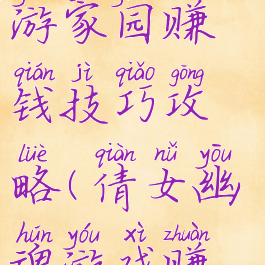 游家园赚
qián jì qiǎo gōng
钱技巧攻
lüè qiàn nǚ yōu
略(倩女幽
hún yóu xì zhuàn
魂游戏赚